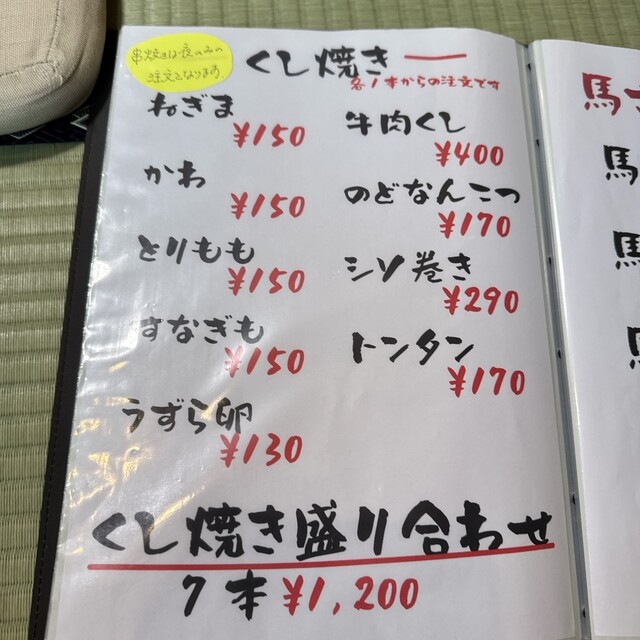 串焼きは夜のみの
注文となります
くし焼き
各1本からの注文です
ねぎま
¥150
かわ
¥150
とりもも
¥150
すなぎも
¥150
うずら卵
¥130
牛肉くし
¥400
のどなんこつ
¥170
シソ巻き
¥290
トンタン
¥170
くし焼き盛り合わせ
7本 ¥1,200
馬
馬
馬